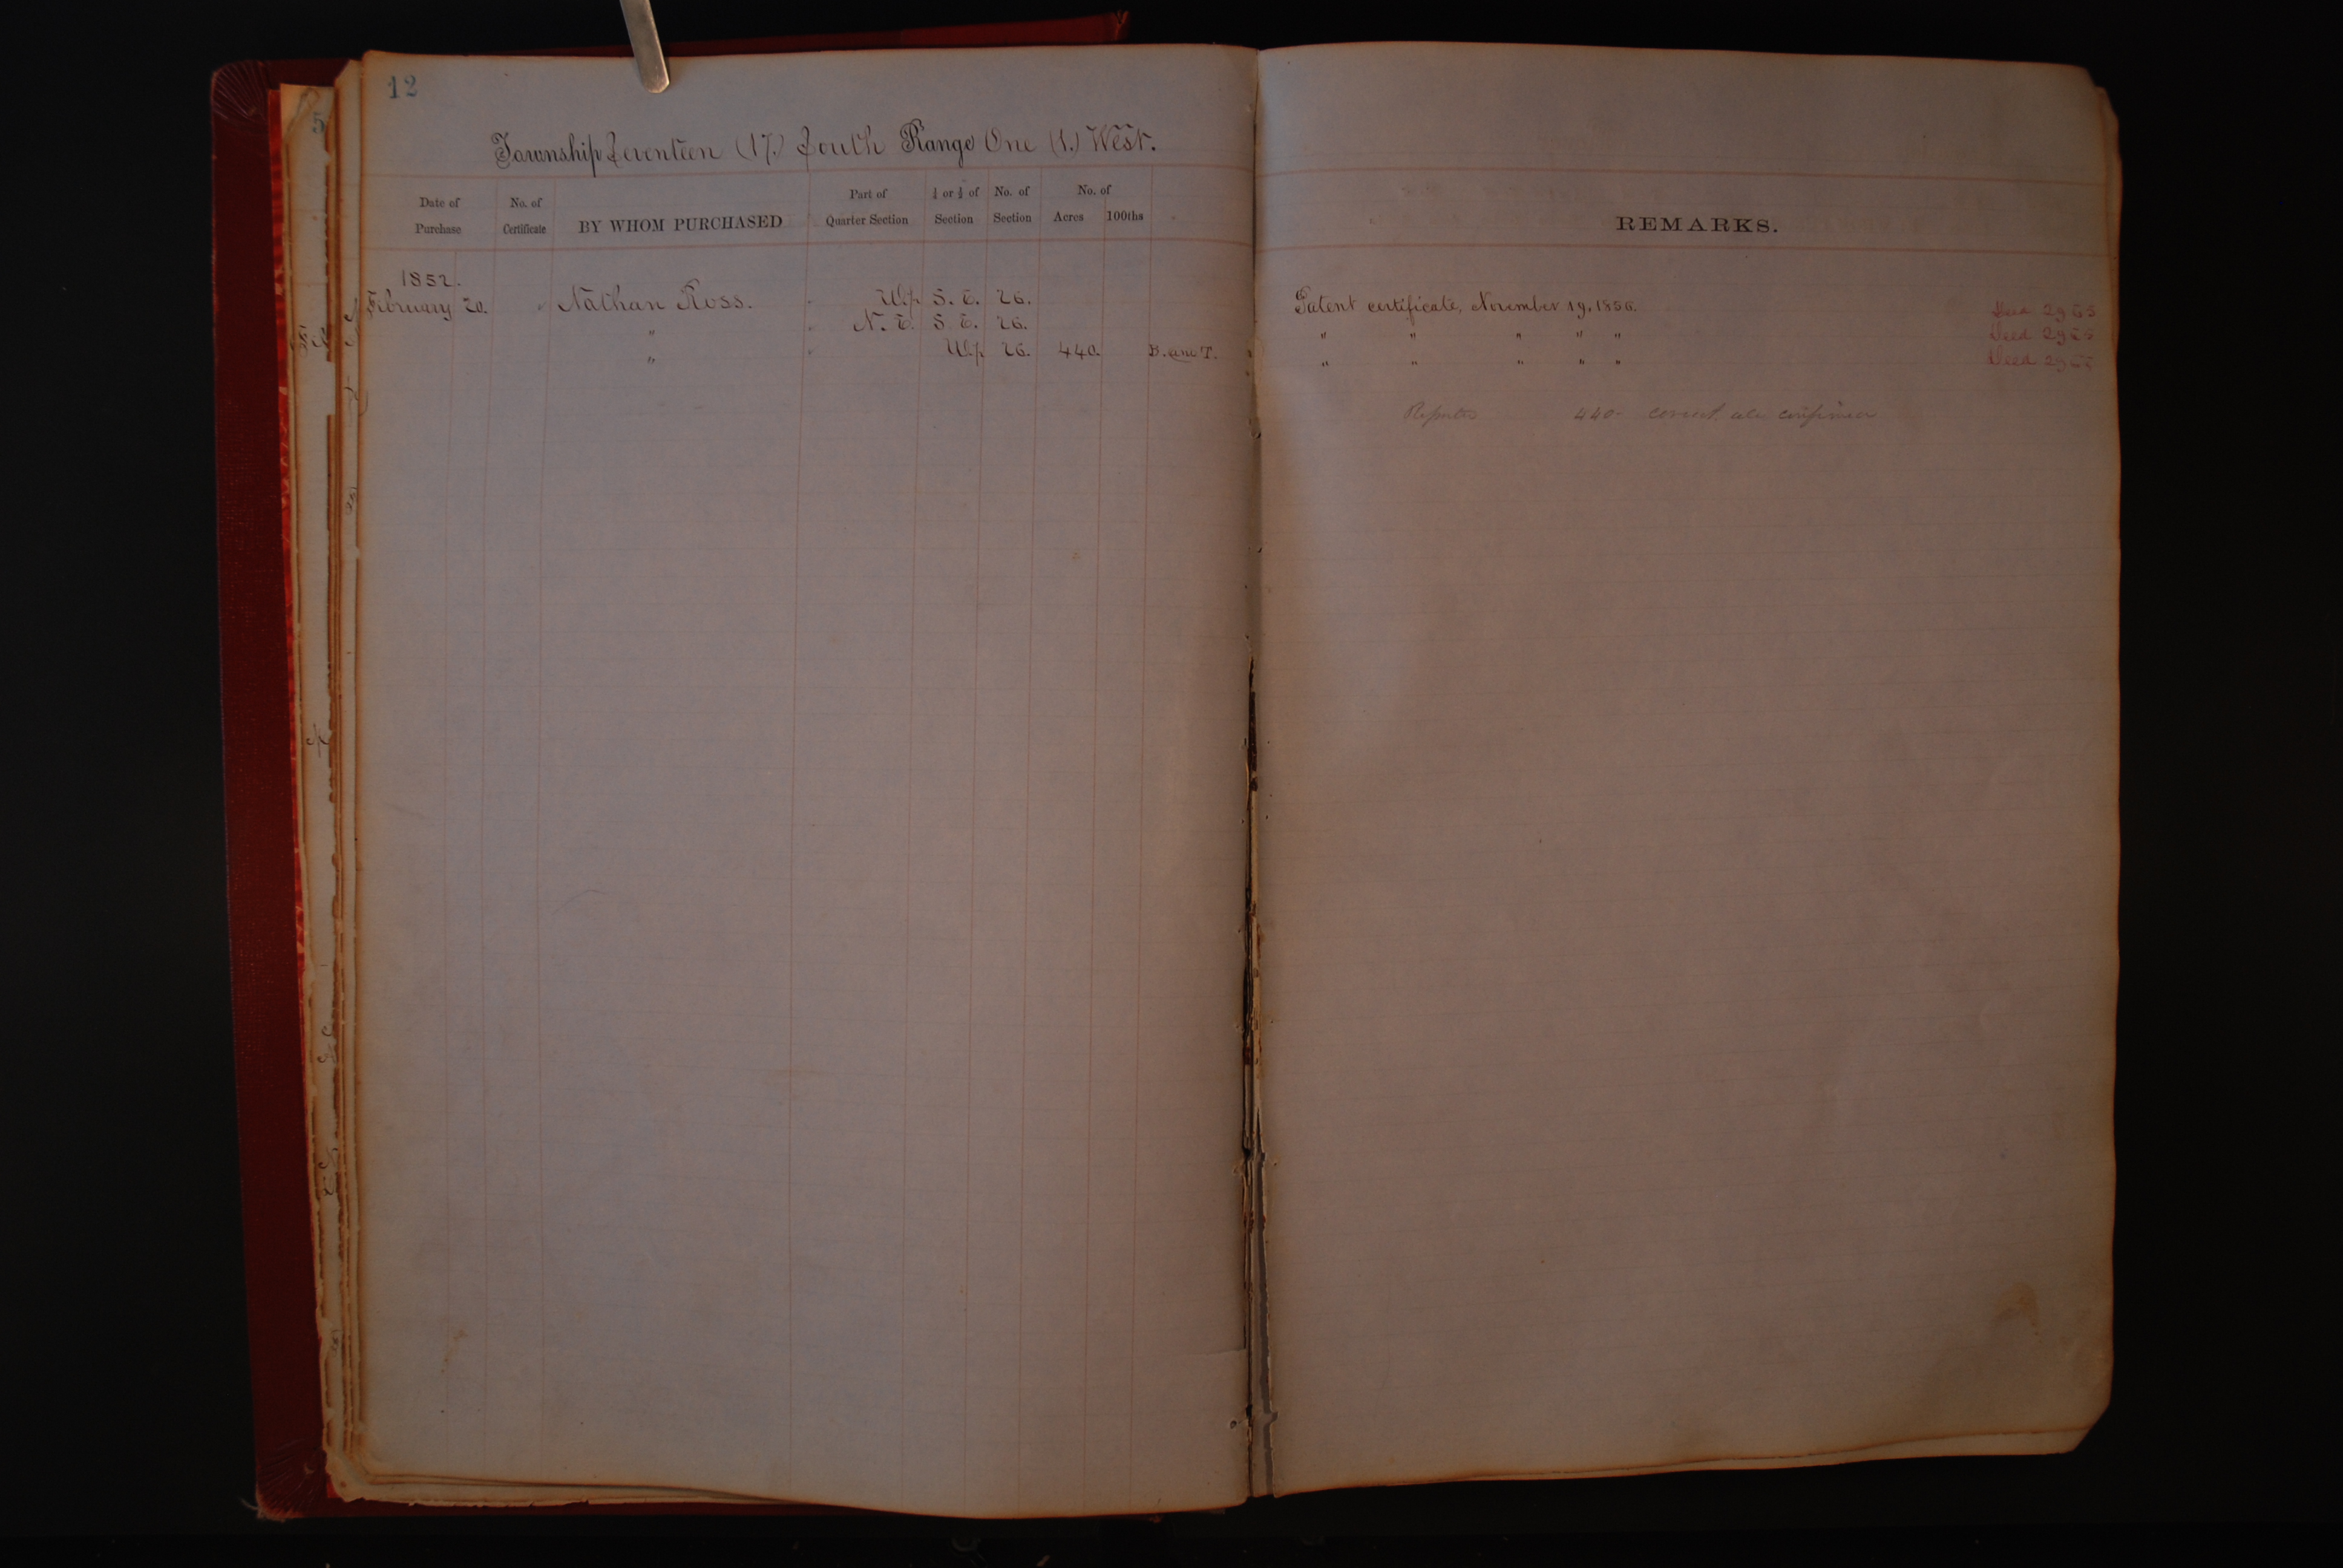 12
Township Seventeen (17.) South Range One (1.) West.
Date of Purchase No. of Certificate BY WHOM PURCHASED Part of Quarter Section ½ or ¼ of Section No. of Section No. of Acres 100ths REMARKS.
1852.
February 20. Nathan Ross. W½ S. E. 26. Patent certificate, November 19, 1856. Deed 2955
" N. E. S. E. 26. " " " " " Deed 2955
" W½ 26. 440. B. and T. " " " " " Deed 2955
Reported 440 correct